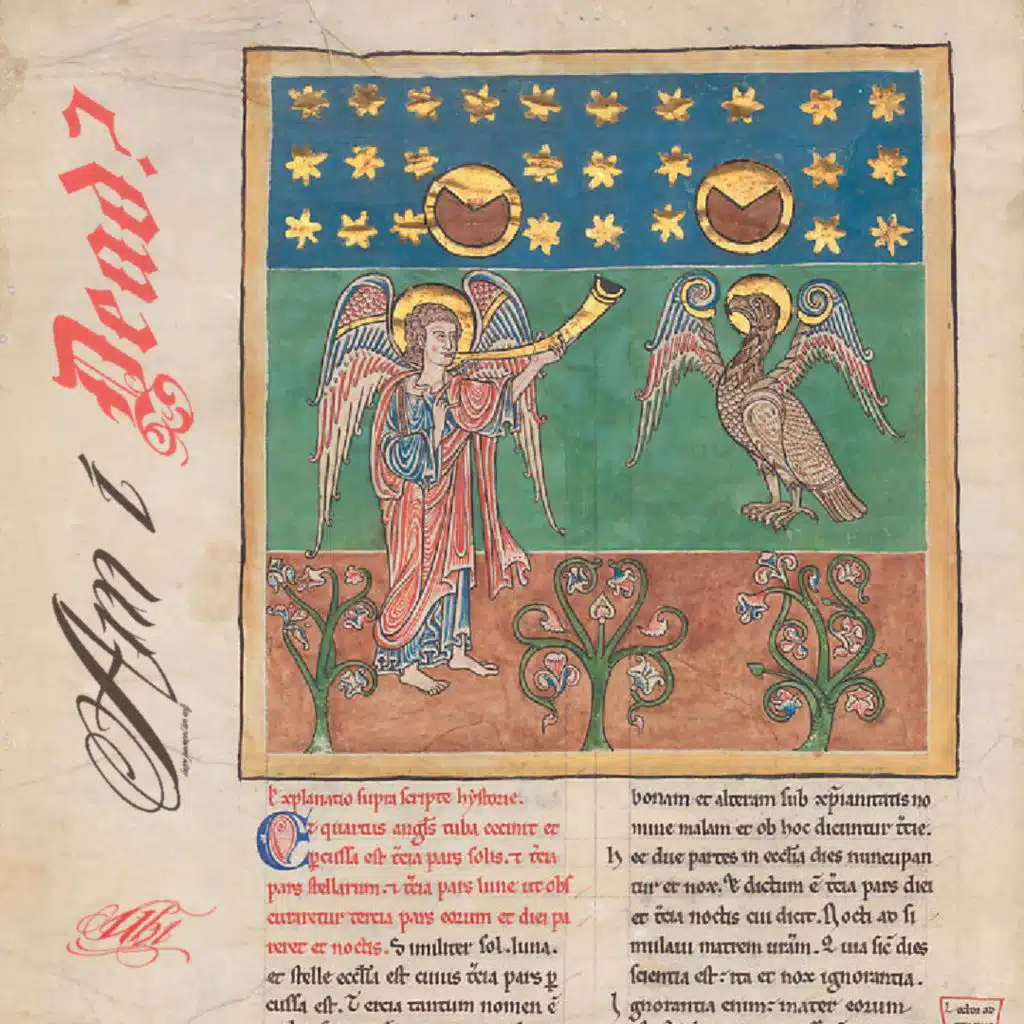 Am i Dead?
Explanatio supra scripte hystorie.
Et quartus angl̃s tuba cecinit et
p̱cussa est t̃cia pars solis. ⁊ t̃cia
pars stellarum. ⁊ t̃cia pars lune ut obs
curaretur tercia pars eorum et diei pa
reret et noctis. Similiter sol. luna.
et stelle eccl̃ia est cuius t̃cia pars p̱
cussa est. Tercia tantum nomen ẽ
bonam et alteram sub xp̃ianitatis no
mine malam et ob hoc dicuntur t̃cie.
hee due partes in eccl̃ia dies nuncupan
tur et nox. Et dictum ẽ t̃cia pars diei
et t̃cia noctis cui dicit. Nocti as si
milaui matrem ur̃am. Quia sic̃ dies
scientia est: ita et nox ignorantia.
Ignorantia enim: mater eorum